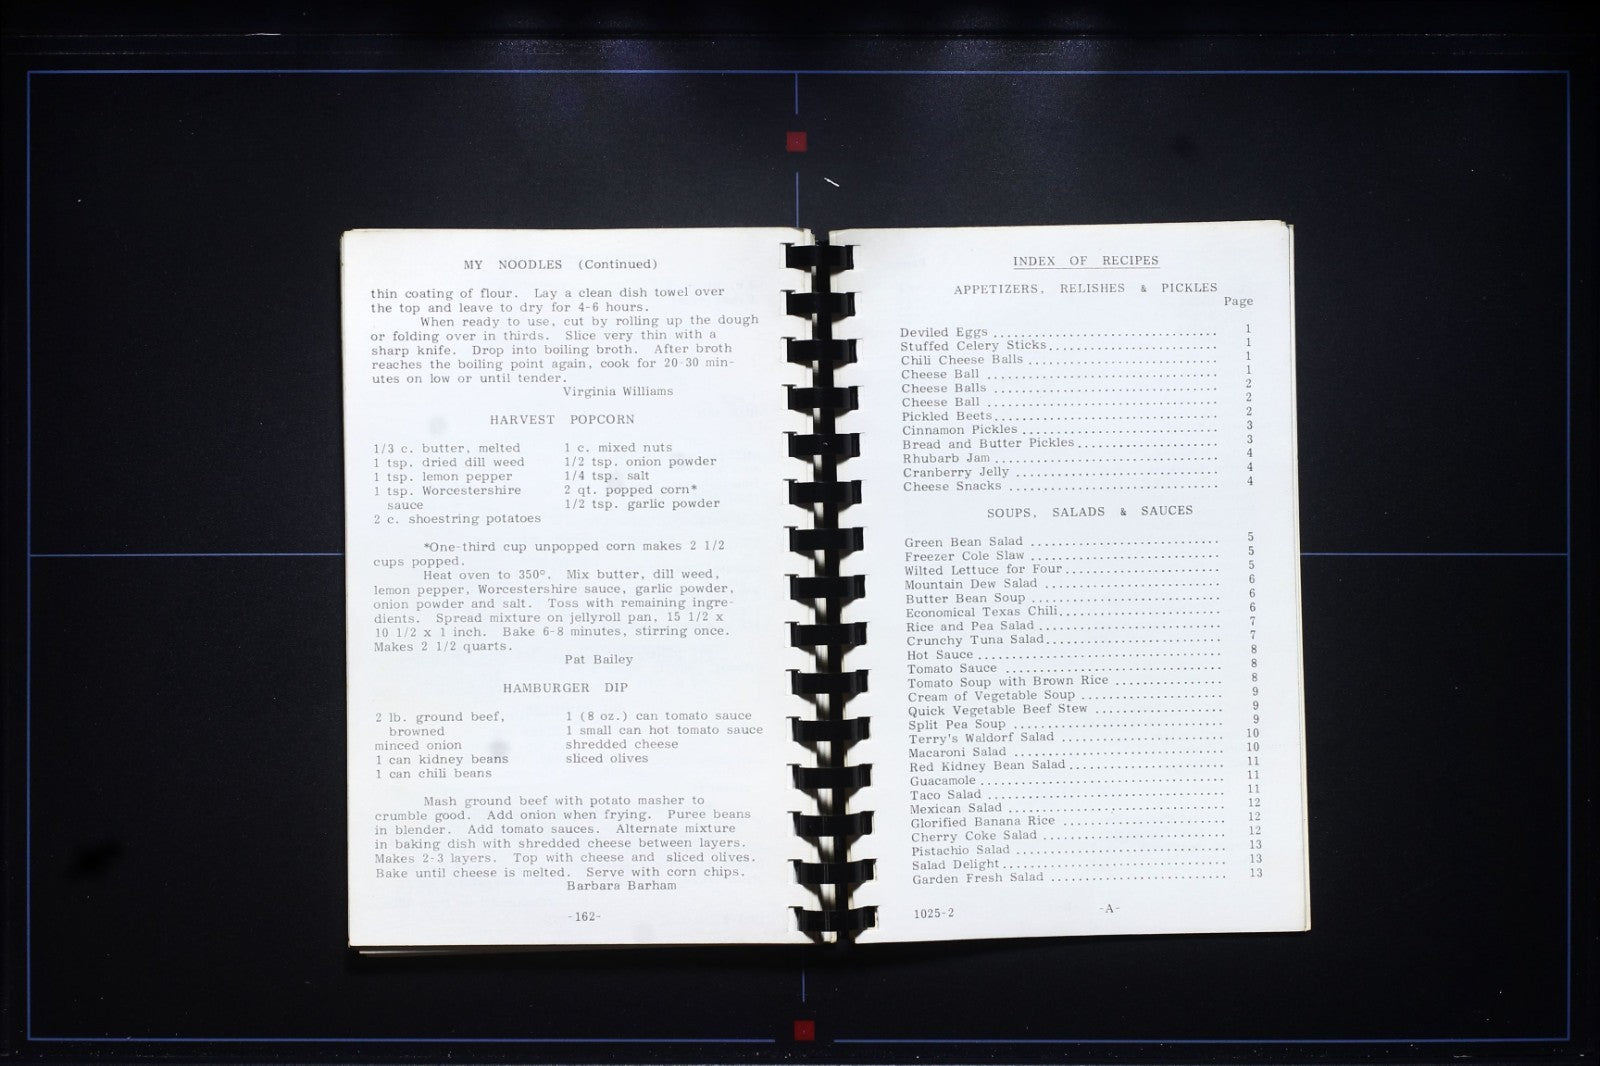 MY NOODLES (Continued)
thin coating of flour. Lay a clean dish towel over
the top and leave to dry for 4-6 hours.
When ready to use, cut by rolling up the dough
or folding over in thirds. Slice very thin with a
sharp knife. Drop into boiling broth. After broth
reaches the boiling point again, cook for 20-30 min-
utes on low or until tender.
Virginia Williams
HARVEST POPCORN
1/3 c. butter, melted
1 tsp. dried dill weed
1 tsp. lemon pepper
1 tsp. Worcestershire
sauce
2 c. shoestring potatoes
1 c. mixed nuts
1/2 tsp. onion powder
1/4 tsp. salt
2 qt. popped corn*
1/2 tsp. garlic powder
*One-third cup unpopped corn makes 2 1/2
cups popped.
Heat oven to 350°. Mix butter, dill weed,
lemon pepper, Worcestershire sauce, garlic powder,
onion powder and salt. Toss with remaining ingre-
dients. Spread mixture on jellyroll pan, 15 1/2 x
10 1/2 x 1 inch. Bake 6-8 minutes, stirring once.
Makes 2 1/2 quarts.
Pat Bailey
HAMBURGER DIP
2 lb. ground beef,
browned
minced onion
1 can kidney beans
1 can chili beans
1 (8 oz.) can tomato sauce
1 small can hot tomato sauce
shredded cheese
sliced olives
Mash ground beef with potato masher to
crumble good. Add onion when frying. Puree beans
in blender. Add tomato sauces. Alternate mixture
in baking dish with shredded cheese between layers.
Makes 2-3 layers. Top with cheese and sliced olives.
Bake until cheese is melted. Serve with corn chips.
Barbara Barham
-162-
INDEX OF RECIPES
APPETIZERS, RELISHES & PICKLES
Page
Deviled Eggs ................................ 1
Stuffed Celery Sticks........................ 1
Chili Cheese Balls ........................... 1
Cheese Ball ................................. 1
Cheese Balls ................................ 2
Cheese Ball ................................. 2
Pickled Beets................................ 2
Cinnamon Pickles ............................ 3
Bread and Butter Pickles.................... 3
Rhubarb Jam ................................ 4
Cranberry Jelly ............................. 4
Cheese Snacks .............................. 4
SOUPS, SALADS & SAUCES
Green Bean Salad ........................... 5
Freezer Cole Slaw ........................... 5
Wilted Lettuce for Four...................... 5
Mountain Dew Salad ......................... 6
Butter Bean Soup ........................... 6
Economical Texas Chili....................... 6
Rice and Pea Salad .......................... 7
Crunchy Tuna Salad......................... 7
Hot Sauce ................................... 8
Tomato Sauce ............................... 8
Tomato Soup with Brown Rice ............... 8
Cream of Vegetable Soup .................... 9
Quick Vegetable Beef Stew .................. 9
Split Pea Soup .............................. 9
Terry's Waldorf Salad ....................... 10
Macaroni Salad .............................. 10
Red Kidney Bean Salad...................... 11
Guacamole ................................... 11
Taco Salad .................................. 11
Mexican Salad ............................... 12
Glorified Banana Rice ....................... 12
Cherry Coke Salad .......................... 12
Pistachio Salad .............................. 13
Salad Delight................................ 13
Garden Fresh Salad ......................... 13
1025-2
-A-